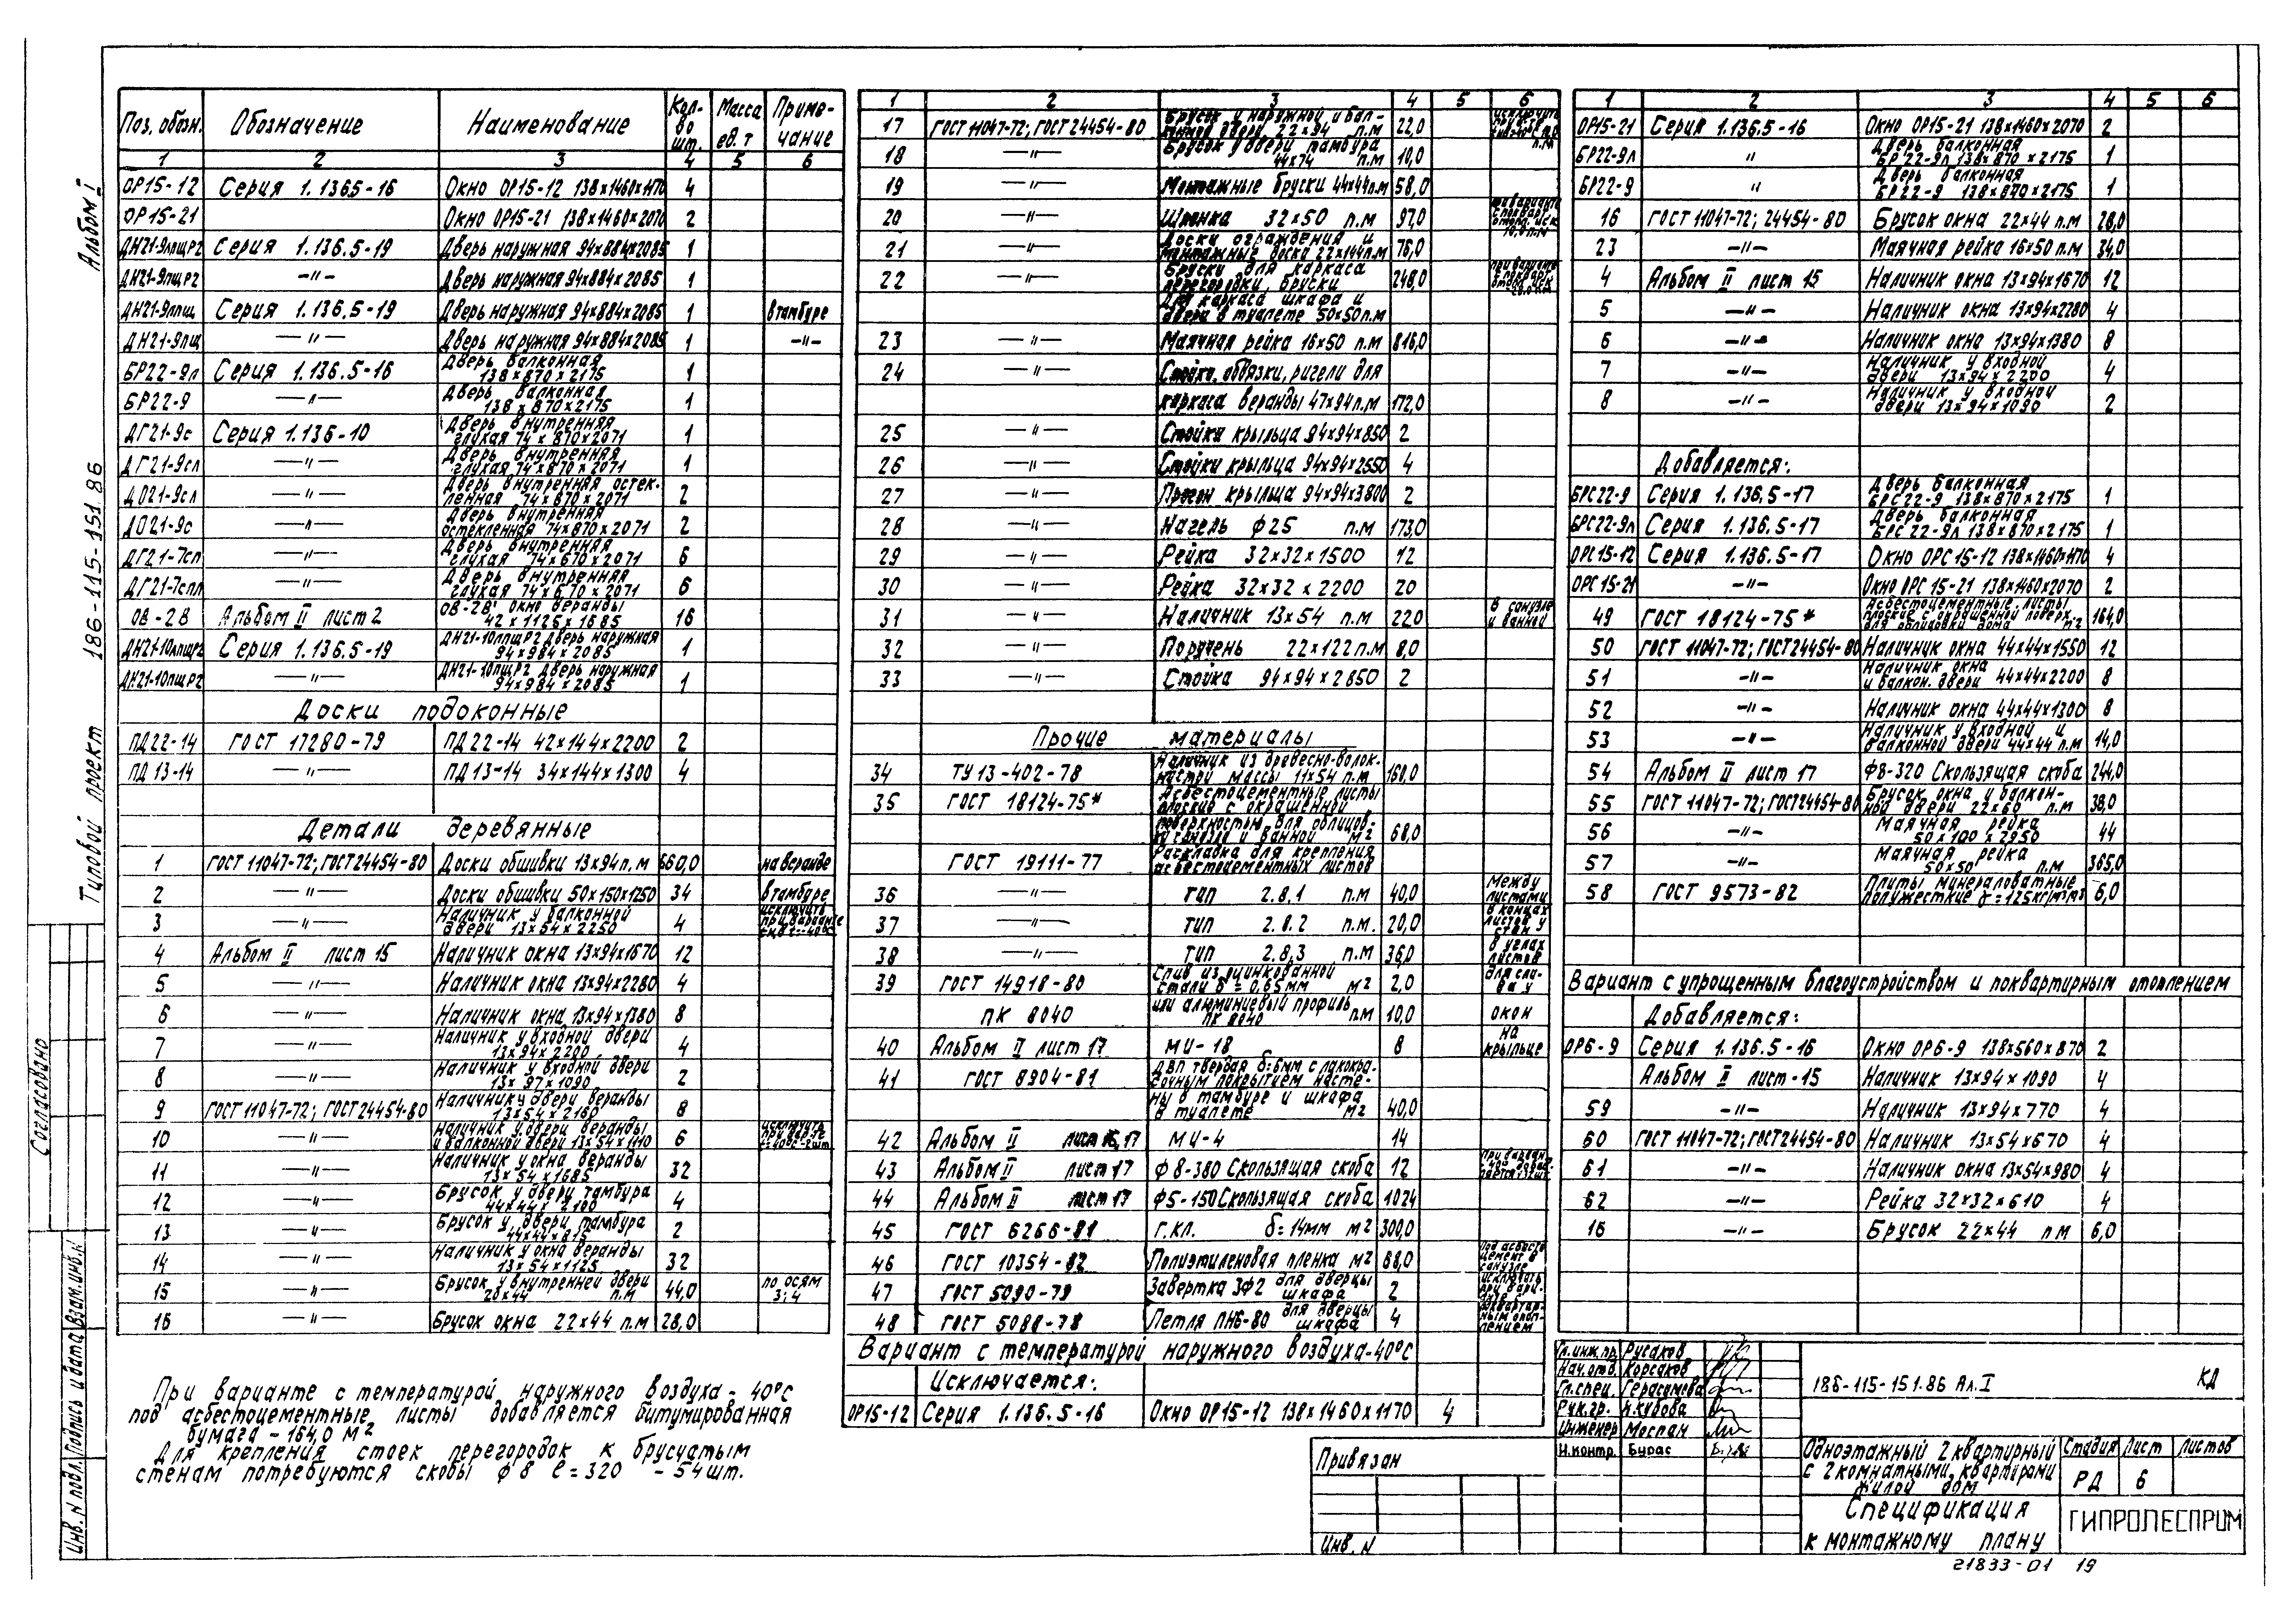 Альбом I
Типовой проект 186-115-151.86
Поз. обозн. Обозначение Наименование Кол-во шт. Масса ед. т Примечание
1 2 3 4 5 6
ОР15-12 Серия 1.136.5-16 Окно ОР15-12 138х1460х1170 4
ОР15-21 Окно ОР15-21 138х1460х2070 2
ДН21-9лщР2 Серия 1.136.5-19 Дверь наружная 94х884х2085 1
ДН21-9пщР2 —〃— Дверь наружная 94х884х2085 1
Серия 1.136.5-19 Дверь наружная 94х884х2085 1 в тамбуре
ДН21-9пщ —〃— Дверь наружная 94х884х2085 1 —〃—
БР22-9л Серия 1.136.5-16 Дверь балконная 138х870х2175 1
БР22-9 —〃— Дверь балконная 138х870х2175 1
ДГ21-9с Серия 1.136-10 Дверь внутренняя глухая 74х870х2071 1
ДГ21-9сл —〃— Дверь внутренняя глухая 74х870х2071 1
ДО21-9сл —〃— Дверь внутренняя остекленная 74х870х2071 2
ДО21-9с —〃— Дверь внутренняя остекленная 74х870х2071 2
ДГ21-7сп —〃— Дверь внутренняя глухая 74х670х2071 6
ДГ21-7спл —〃— Дверь внутренняя глухая 74х670х2071 6
ОВ-28 Альбом II лист 2 ОВ-28 окно веранды 42х1125х1685 16
Серия 1.136.5-19 Дверь наружная 94х984х2085 1
ДН21-10пщР2 —〃— ДН21-10пщР2 Дверь наружная 94х984х2085 1
Доски подоконные
ПД22-14 ГОСТ 17280-79 ПД22-14 42х144х2200 2
ПД13-14 —〃— ПД13-14 34х144х1300 4
Детали деревянные
1 ГОСТ 11047-72; ГОСТ 24454-80 Доски обшивки 13х94 п.м 660,0 на веранде
2 —〃— Доски обшивки 50х150х1250 34 в тамбуре
3 —〃— Наличник у балконной двери 13х54х2250 4 исключить при варианте с t=-40°С
4 Альбом II лист 15 Наличник окна 13х94х1670 12
5 —〃— Наличник окна 13х94х2280 4
6 —〃— Наличник окна 13х94х1380 8
7 —〃— Наличник у входной двери 13х94х2200 4
8 —〃— Наличник у входной двери 13х97х1090 2
9 ГОСТ 11047-72; ГОСТ 24454-80 Наличник у двери веранды 13х54х2160 8
10 —〃— Наличник у двери веранды и балконной двери 13х54х1110 6
11 —〃— Наличник у окна веранды 13х54х1685 32
12 —〃— Брусок у двери тамбура 44х44х2100 4
13 —〃— Брусок у двери тамбура 44х44х815 2
14 —〃— Наличник у окна веранды 13х54х1125 32
15 —〃— Брусок у внутренней двери 20х44 п.м 44,0 по осям 3; 4
16 —〃— Брусок окна 22х44 п.м 28,0
При варианте с температурой наружного воздуха -40°С
под асбестоцементные листы добавляется битумированная
бумага - 164,0 м2
Для крепления стоек перегородок к брусчатым
стенам потребуются скобы ф8 ℓ=320 - 54 шт.
1 2 3 4 5 6
17 ГОСТ 11047-72; ГОСТ 24454-80 Брусок у наружной и балконной двери 22х94 п.м 22,0
18 —〃— Брусок у двери тамбура 44х74 п.м 10,0
19 —〃— Монтажные бруски 44х44 п.м 58,0
20 —〃— 32х50 п.м 97,0
21 —〃— Доски ограждения и монтажные доски 22х144 п.м 76,0
22 —〃— Бруски для каркаса перегородки, бруски 248,0
для каркаса шкафа и двери в туалете 50х50 п.м
23 —〃— Маячная рейка 16х50 п.м 816,0
24 —〃— Стойки, обвязки, ригели для
каркаса веранды 47х94 п.м 172,0
25 —〃— Стойки крыльца 94х94х850 2
26 —〃— Стойки крыльца 94х94х2550 4
27 —〃— Прогон крыльца 94х94х3800 2
28 —〃— Нагель ф25 п.м 173,0
29 —〃— Рейка 32х32х1500 12
30 —〃— Рейка 32х32х2200 20
31 —〃— Наличник 13х54 п.м 22,0 в санузле и ванной
32 —〃— Поручень 22х122 п.м 8,0
33 —〃— Стойка 94х94х2850 2
Прочие материалы
34 ТУ 13-402-78 Наличник из древесно-волокнистой массы 11х54 п.м 160,0
35 ГОСТ 18124-75* Асбестоцементные листы плоские с окрашенной
поверхностью для облицовки санузла и ванной м2 68,0
ГОСТ 19111-77 Раскладка для крепления асбестоцементных листов
36 —〃— тип 2.8.1 п.м 40,0 между листами
37 —〃— тип 2.8.2 п.м. 20,0 в концах листов у стен
38 —〃— тип 2.8.3 п.м 36,0 в углах листов
39 ГОСТ 14918-80 Слив из оцинкованной стали δ=0,65мм м2 2,0 для слива у
ПК 8040 или алюминиевый профиль ПК 8040 п.м 10,0 окон
40 Альбом II лист 17 МИ-18 8 на крыльце
41 ГОСТ 8904-81 ДВП твердая δ=6мм с лакокрасочным покрытием на стены
в тамбуре и шкафа в туалете м2 40,0
42 Альбом II лист 16,17 МИ-4 14
43 Альбом II лист 17 ф8-380 Скользящая скоба 12
44 Альбом II лист 17 ф5-150 Скользящая скоба 1024
45 ГОСТ 6266-81 Г.КЛ. δ=14мм м2 300,0
46 ГОСТ 10354-82 Полиэтиленовая пленка м2 68,0 под асбестоцемент в санузле
47 ГОСТ 5090-79 Завертка ЗФ2 для дверцы шкафа 2
48 ГОСТ 5088-78 Петля ПН6-80 для дверцы шкафа 4
Вариант с температурой наружного воздуха -40°С
Исключается:
ОР15-12 Серия 1.136.5-16 Окно ОР15-12 138х1460х1170 4
1 2 3 4 5 6
ОР15-21 Серия 1.136.5-16 Окно ОР15-21 138х1460х2070 2
БР22-9л 〃 Дверь балконная БР22-9л 138х870х2175 1
БР22-9 〃 Дверь балконная БР22-9 138х870х2175 1
16 ГОСТ 11047-72; 24454-80 Брусок окна 22х44 п.м 28,0
23 —〃— Маячная рейка 16х50 п.м 34,0
4 Альбом II лист 15 Наличник окна 13х94х1670 12
5 —〃— Наличник окна 13х94х2280 4
6 —〃— Наличник окна 13х94х1380 8
7 —〃— Наличник у входной двери 13х94х2200 4
8 —〃— Наличник у входной двери 13х94х1090 2
Добавляется:
БРС22-9 Серия 1.136.5-17 Дверь балконная БРС22-9 138х870х2175 1
БРС22-9л Серия 1.136.5-17 Дверь балконная БРС22-9л 138х870х2175 1
ОРС15-12 Серия 1.136.5-17 Окно ОРС15-12 138х1460х1170 4
ОРС15-21 —〃— Окно ОРС15-21 138х1460х2070 2
49 ГОСТ 18124-75* Асбестоцементные листы плоские с окрашенной поверх. для облицовки дома м2 164,0
50 ГОСТ 11047-72; ГОСТ 24454-80 Наличник окна 44х44х1550 12
51 —〃— Наличник окна и балкон. двери 44х44х2200 8
52 —〃— Наличник окна 44х44х1300 8
53 —〃— Наличник у входной и балконной двери 44х44 п.м 14,0
54 Альбом II лист 17 ф8-320 Скользящая скоба 244,0
55 ГОСТ 11047-72; ГОСТ 24454-80 Брусок окна и балконной двери 22х60 п.м 38,0
56 —〃— Маячная рейка 50х100х2950 44
57 —〃— Маячная рейка 50х50 п.м 365,0
58 ГОСТ 9573-82 Плиты минераловатные полужесткие γ=125кг/м3 м3 6,0
Вариант с упрощенным благоустройством и поквартирным отоплением
Добавляется:
ОР6-9 Серия 1.136.5-16 Окно ОР6-9 138х560х870 2
Альбом II лист-15 Наличник 13х94х1090 4
59 —〃— Наличник 13х94х770 4
60 ГОСТ 11047-72; ГОСТ 24454-80 Наличник 13х54х670 4
61 —〃— Наличник окна 13х54х980 4
62 —〃— Рейка 32х32х610 4
16 —〃— Брусок 22х44 п м 6,0
Гл.инж.пр. Русаков
Нач.отд. Корсаков
Гл.спец. Герасимова
Рук.гр.
Инженер Моспан
Н.контр. Бурас
186-115-151.86 Ал.I КД
Одноэтажный 2 квартирный с 2 комнатными квартирами жилой дом
Стадия Лист Листов
РД 6
Спецификация к монтажному плану
ГИПРОЛЕСПРОМ
Привязан
Инв. N
21833-01 19
Согласовано
Инв. N подл. Подпись и дата Взам. инв. N